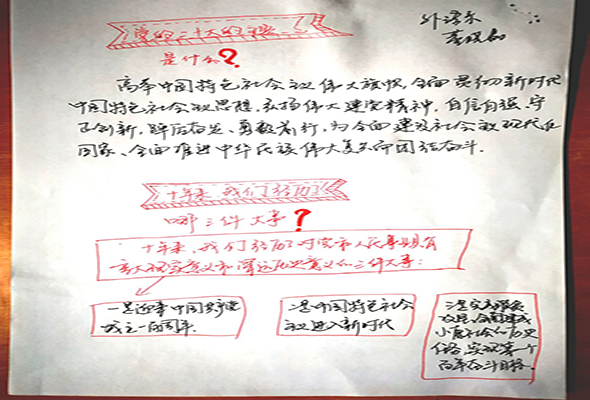 党的二十大的主题
外语系
是什么？
高举中国特色社会主义伟大旗帜，全面贯彻新时代
中国特色社会主义思想，弘扬伟大建党精神，自信自强、守
正创新，踔厉奋发、勇毅前行，为全面建设社会主义现代化
国家、全面推进中华民族伟大复兴而团结奋斗.
十年来，我们经历了
哪三件大事？
十年来，我们经历了对党和人民事业具有
重大现实意义和深远历史意义的三件大事：
一是迎来中国共产党
成立一百周年
二是中国特色社会
主义进入新时代
三是完成脱贫
攻坚、全面建成
小康社会的历史
任务，实现第一个
百年奋斗目标.